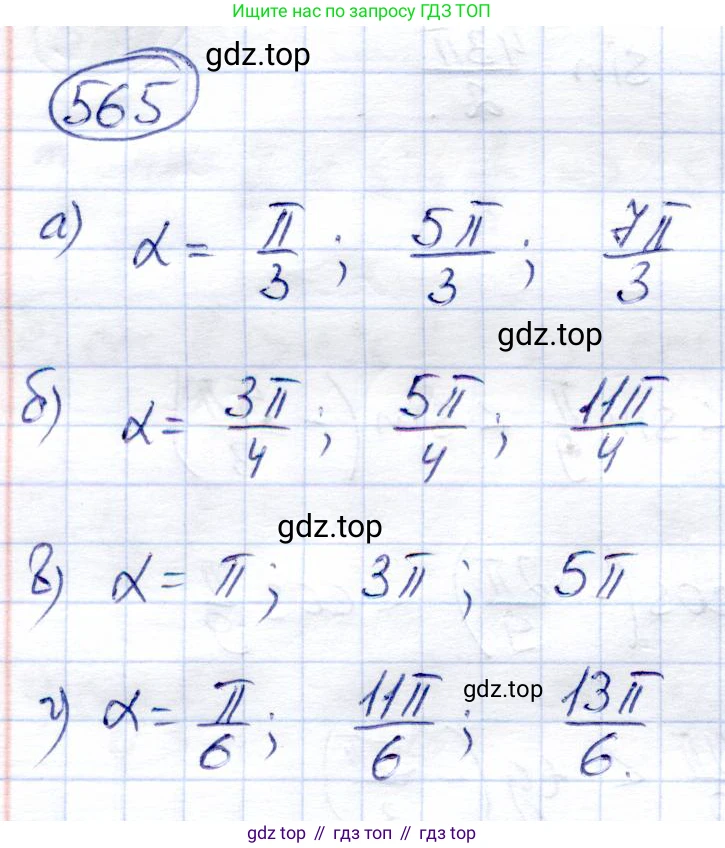 Ищите нас по запросу ГДЗ ТОП
565
gdz.top
а) α = π/3 ; 5π/3 ; 7π/3
gdz.top
б) α = 3π/4 ; 5π/4 ; 11π/4
gdz.top
в) α = π ; 3π ; 5π
г) α = π/6 ; 11π/6 ; 13π/6.
gdz.top
gdz top // гдз топ // gdz.top